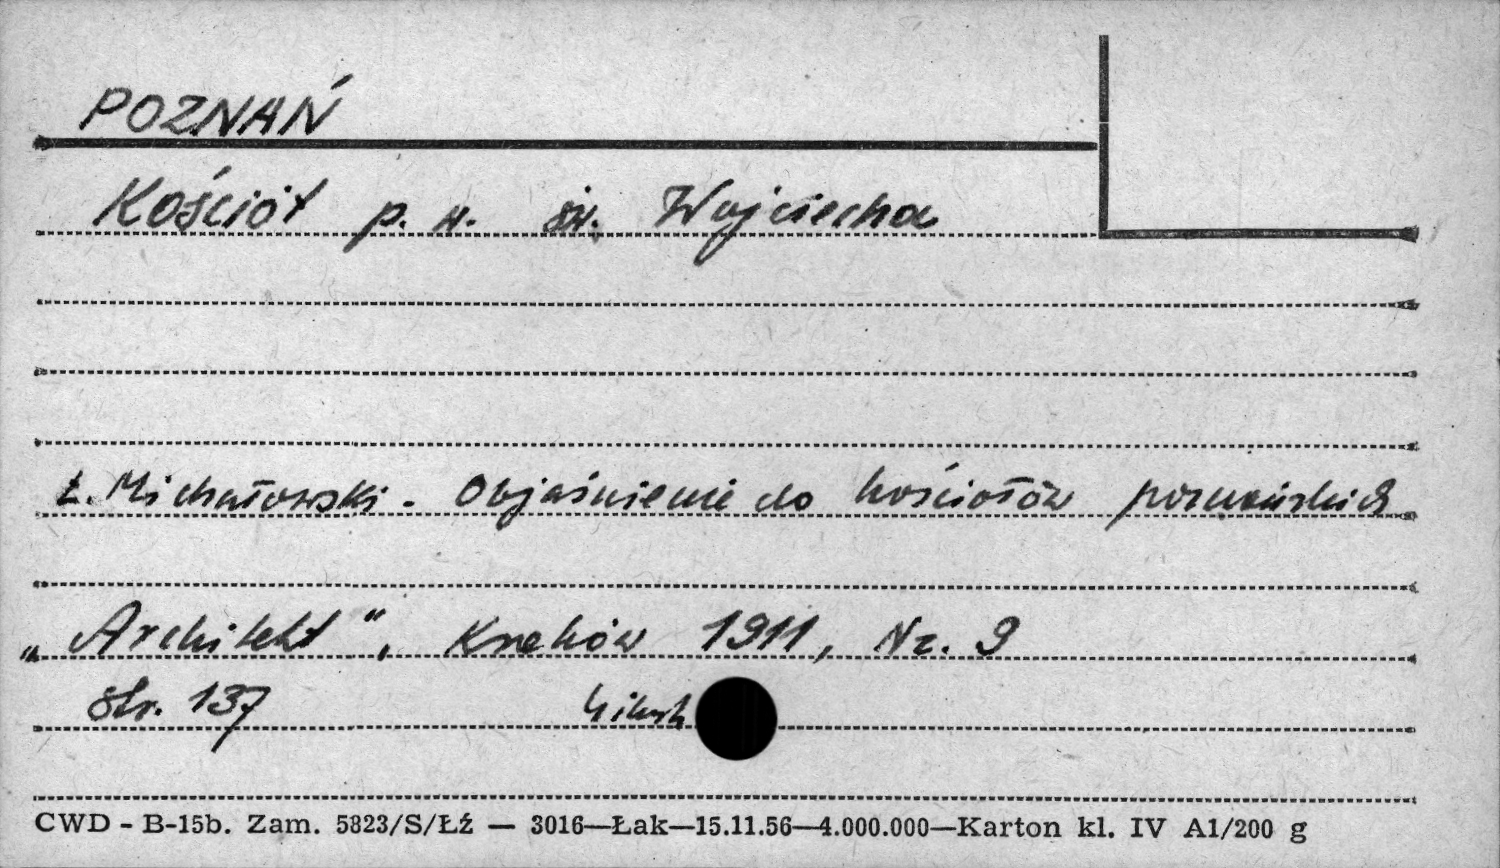 POZNAŃ
Kościół p. w. św. Wojciecha
Ł. Michałowski. Objaśnienie do kościołów poznańskich
„Architekt", Kraków 1911, Nr. 9
str. 137
CWD - B-15b. Zam. 5823/S/ŁŹ — 3016—Łak—15.11.56—4.000.000—Karton kl. IV A1/200 g